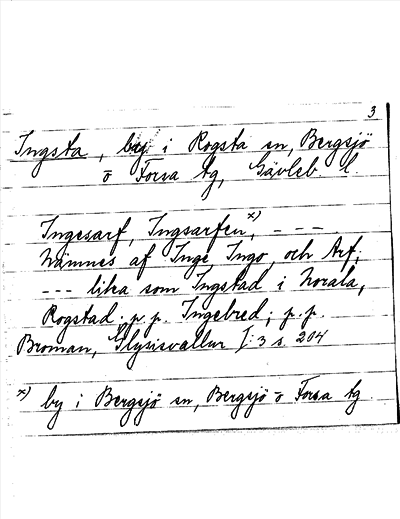 3
Ingsta, by i Rogsta sn, Bergsjö
o Forsa tg, Gävleb l.
Ingesarf, Ingsarfen,x) - - -
Nämnes af Inge Ingo, och Arf,
--- lika som Ingstad i Norala,
Rogstad. p.p. Ingebred; p.p.
Broman, Glysisvallur I:3 s. 204
x) by i Bergsjö sn, Bergsjö o Forsa tg.